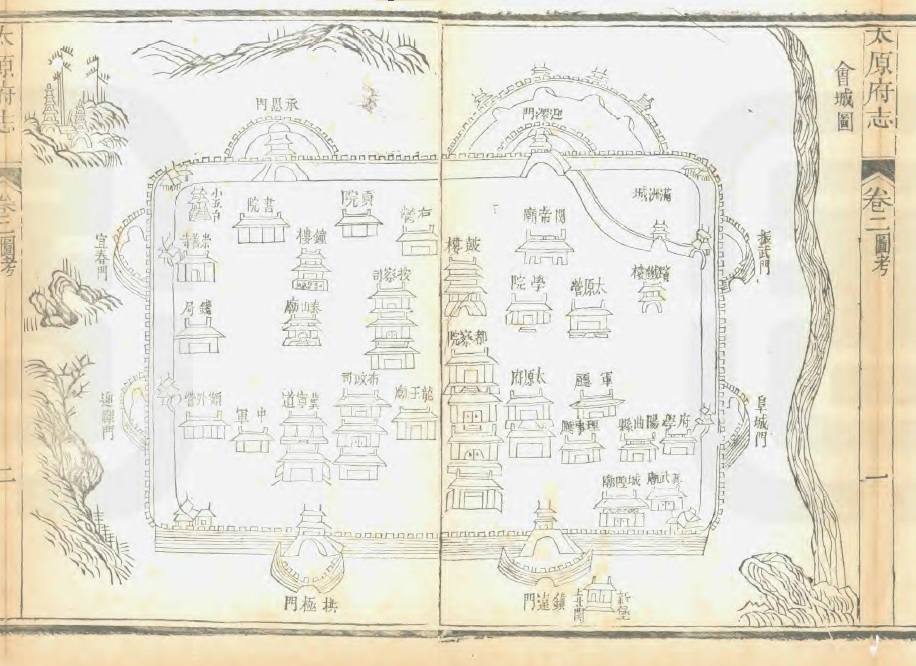 太原府志
卷二
圖考
一
會城圖
迎澤門
承恩門
振武門
阜城門
宜春門
迎暉門
鎮遠門
拱極門
新堡
滿洲城
關帝廟
鼓樓
學院
太原營
都察院
太原府
軍廳
理事廳
陽曲縣
府學
城隍廟
文武廟
右營
貢院
書院
小五台
崇善寺
鐘樓
按察司
錢局
泰山廟
布政司
龍王廟
冀寧道
中軍
額外營
太原府志
卷二
圖考
二